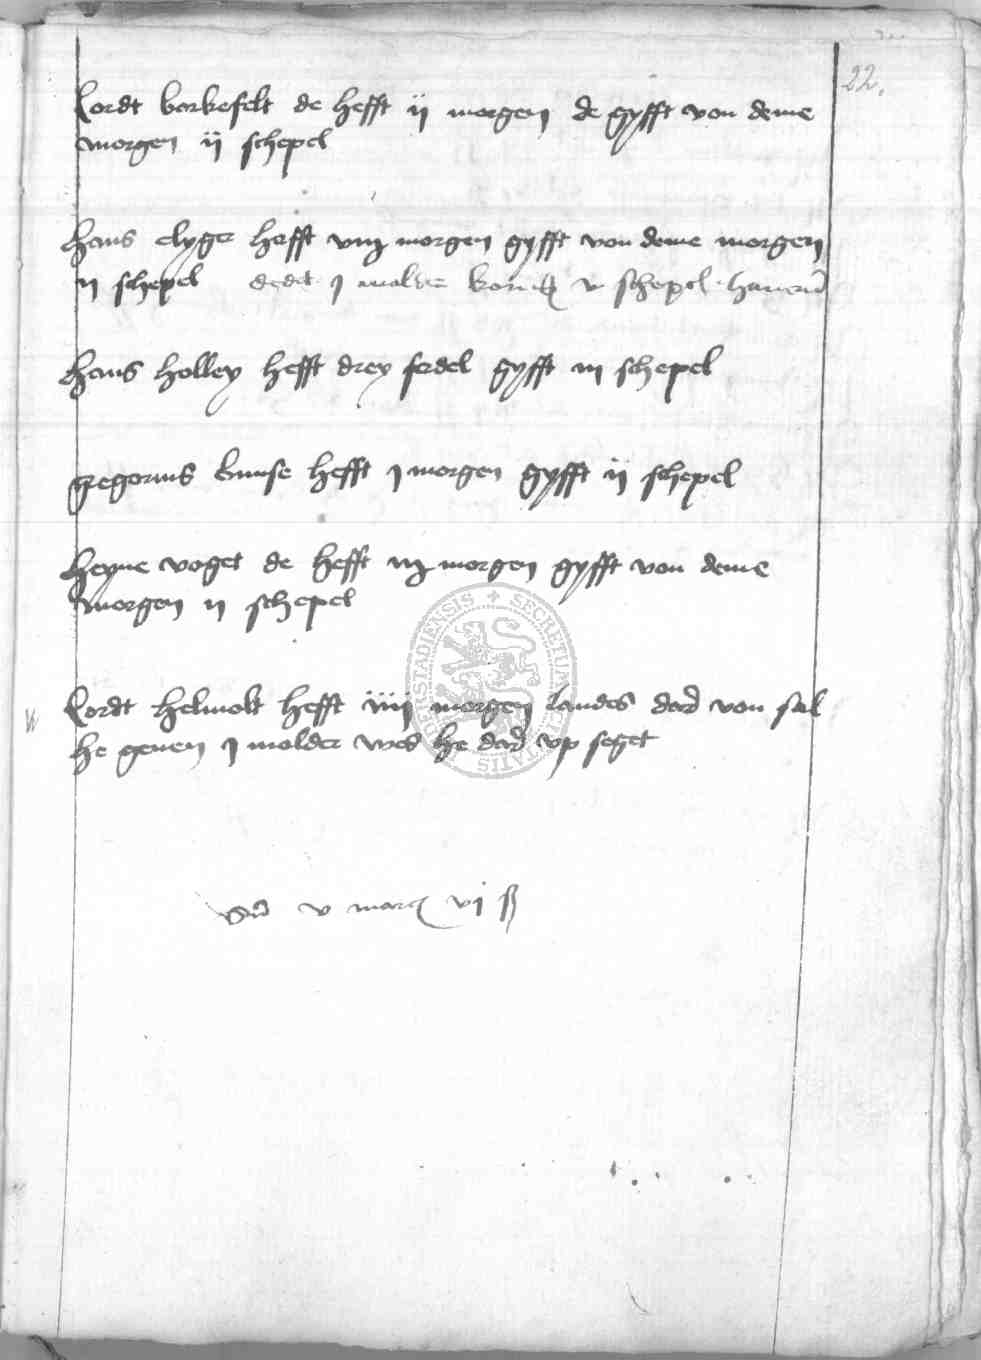 22.
Cordt berkefelt de hefft ij morgen de gyfft von deme
morgen ij schepel
hans clyger hefft viij morgen gyfft von deme morgen
ij schepel dedit j molder korn v schepel haueren
hans holley hefft drey ferdel gyfft iij schepel
gregorius kunse hefft j morgen gyfft ij schepel
heyne voget de hefft iij morgen gyfft von deme
morgen ij schepel
Cordt helmolt hefft iiij morgen landes dar von sal
he geuen j molder wes he dar vp seget
v marc vj ß
SECRETUM